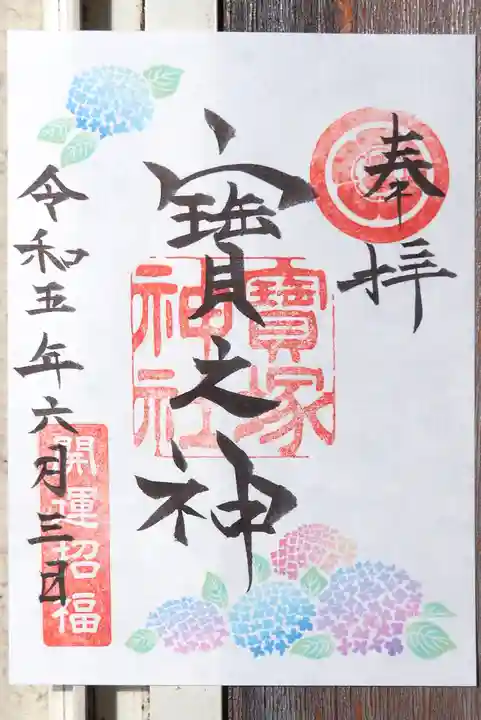 奉拝
寶之神
寶塚
神社
令和五年六月三日
開運招福